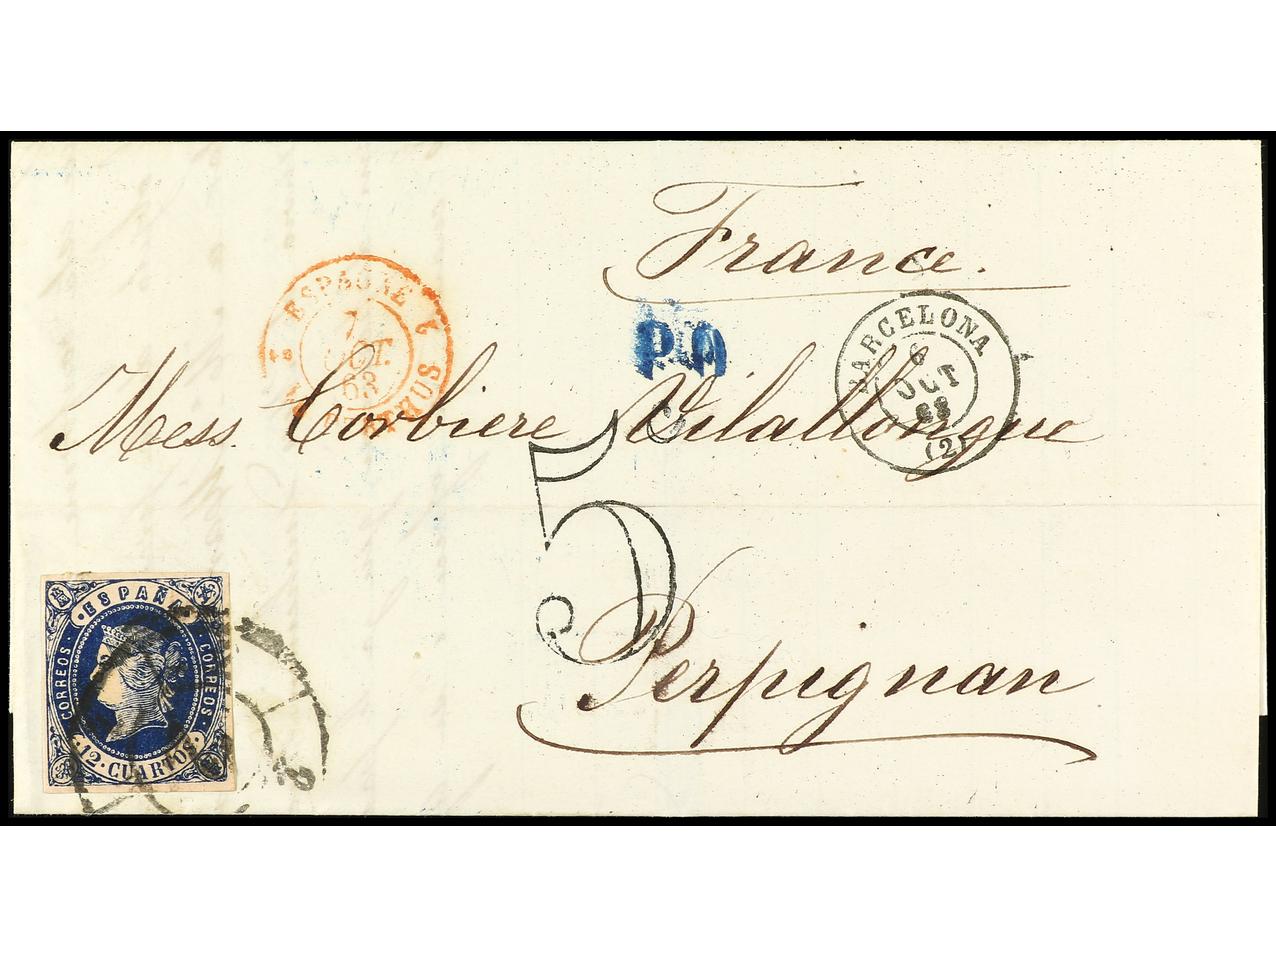 France.
ESPAGNE
7
OCT.
63
P.D.
BARCELONA
6
OCT
63
(2)
Mess. Corbiere Vilallongue
5
Perpignan
ESPAÑA
CORREOS
CORREOS
12 CUARTOS